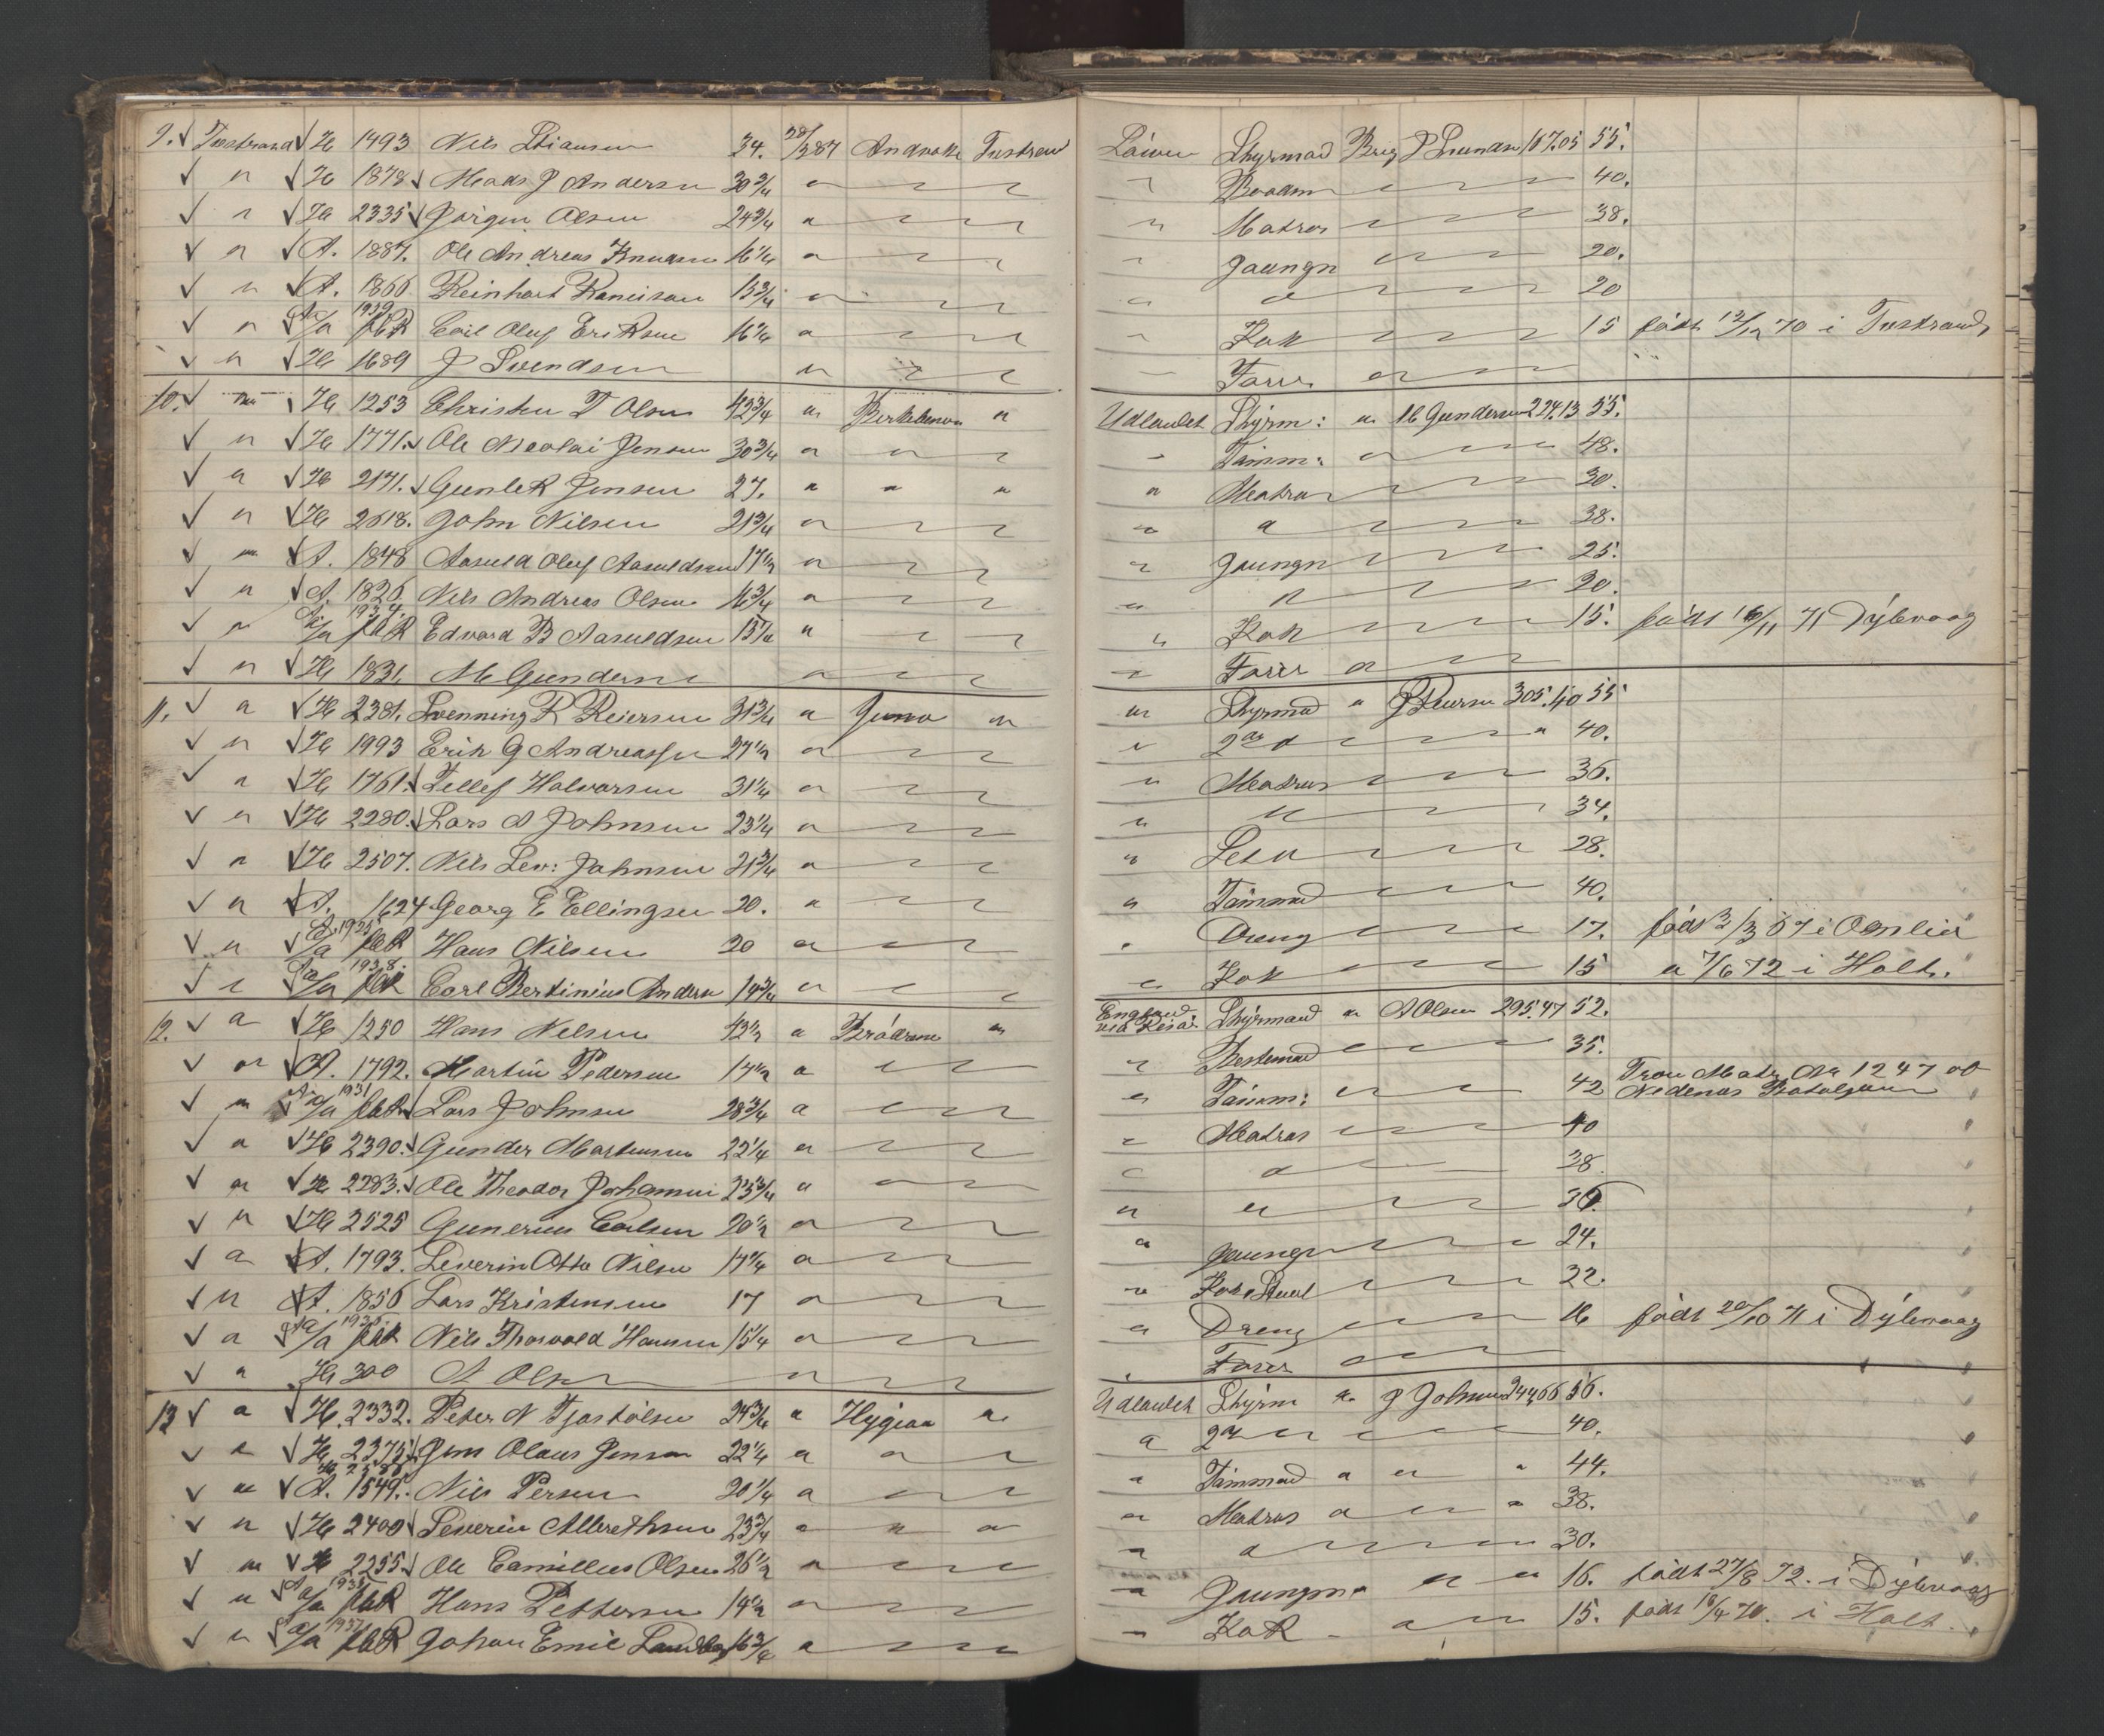 9. Tvestrand H 1493 Nils Stiansen 34. 28/3 87 Andvake Tvestrand
" H 1878 Mads J Andersen 30 3/4 " " "
" H 2335 Jørgen Olsen 24 3/4 " " "
" A. 1887. Ole Andreas Knudsen 16 1/4 " " "
" A. 1866 Reinhart 15 3/4 " " "
" A 1939 Carl Oluf Eriksen 16 1/4 " " "
" H 1689 J Svendsen " " "
10. " H 1253 Christen T Olsen 42 3/4 " Birkebeneren "
" H 1771. Ole Nicolai Jensen 30 3/4 " " "
" H 2171. Gunlek Jensen 27. " " "
" H 2618. John Nilsen 21 3/4 " " "
" A. 1848 Aasuld Oluf Aasuldsen 17 1/2 " " "
" A. 1826 Nils Andreas Olsen 16 3/4 " " "
" A 1934. Edvard B Aasuldsen 15 1/4 " " "
" H 1831 M Gundersen " " "
11. " H 2381. Svenning R Reiersen 31 3/4 " Juno "
" H 1993 Erik G Andreassen 27 1/2 " " "
" H 1761. Tellef Halvorsen 31 1/4 " " "
" H 2280. Lars A Johnsen 23 1/4 " " "
" H 2507. Nils Lev: Johnsen 21 3/4 " " "
" A. 1624 Georg E Ellingsen 20. " " "
" A. 1925 Hans Nilsen 20 " " "
" A 1938. Carl Bertinius Andersen 14 3/4 " " "
12. " H 1250 Hans Nelsen 42 1/2 " Brødrene "
" A. 1792. Martin Pedersen 17 1/2 " " "
" 1931 Lars Johnsen 28 3/4 " " "
" H 2390. Gunder Mortensen 22 1/4 " " "
" H 2283. Ole Theodor Johannesen 23 3/4 " " "
" H 2525 Gunerius Carlsen 20 1/2 " " "
" A. 1793. Severin Otto Nilsen 17 1/4 " " "
" A. 1856 Lars Kristensen 17 " " "
" Nils Thorvald Hansen 15 1/4 " " "
" H 300 A Olsen " " "
13 " H. 2332. Peter N Tjøstolsen 24 3/4 " Hygiea "
" H. 2375 Jens Olaus Jensen 22 1/4 " " "
" A. 1549. Nils Persen 20 1/4 " " "
" H 2400 Severin Albrethsen 23 3/4 " " "
" H 2255 Ole Camillus Olsen 26 1/2 " " "
" A Hans Pettersen 14 1/2 " " "
" A 1937 Johan Emil 16 3/4 " " "
Styrmand Brig J Svendsen 167.05 55.
" Baadsm " " " 40.
" Matros " " " 38.
" Jaungm " " " 20.
" " " " " 20
" Kok " " " 15 født 12/12 70 i Tvestrand
" Fører " "
Udlandet Styrm: " M Gundersen 224.13 55.
" Tømm: " " " 48.
" Matros " " " 30.
" " " " " 38.
" Jaungm " " " 25.
" " " " " 20.
" Kok " " " 15. født 16/11 71 Dybvaag
" Fører " "
" Styrmd " J Reiersen 305.40 55
" 2den " " " " 40.
" Matros " " " 36.
" " " " " 34.
" Letm " " " 28.
" Tømmd " " " 40.
" Dreng " " " 17. født 2/3 67 i Omlid
" Kok " " " 15 " 7/6 72 i Holt.
England via Risør Styrmand " A Olsen 295.47 52.
" Bestemd " " " 35.
" Tømm: " " " 42 Trou Matr No 1247 os Nedenæs
" Matros " " " 40
" " " " 38
" " " " " 36
" Jaungm " " " 24.
" Kok Stuert " " " 22.
" Dreng " " " 16 født 20/10 71 i Dybvaag
" Fører " "
Udlandet Styrm " J Johnsen 244,66 56.
" 2den " " " 40.
" Tømmand " " " 44.
" Matros " " " 38.
" " " " " 30.
" Jaungm " " " 16. født 27/8 72. i Dybvaag
" Kok " " 15. født 16/4 70. i Holt.